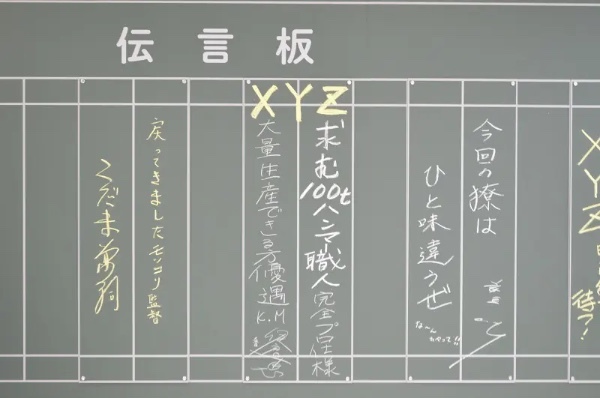 伝言板
XYZ
待つ!
今回の獠は
ひと味違うぜ
なーんちゃって!!
XYZ
求む100tハンマー職人完全プロ仕様
大量生産できる方優遇K.M
戻ってきましたモッコリ監督
こだま兼嗣